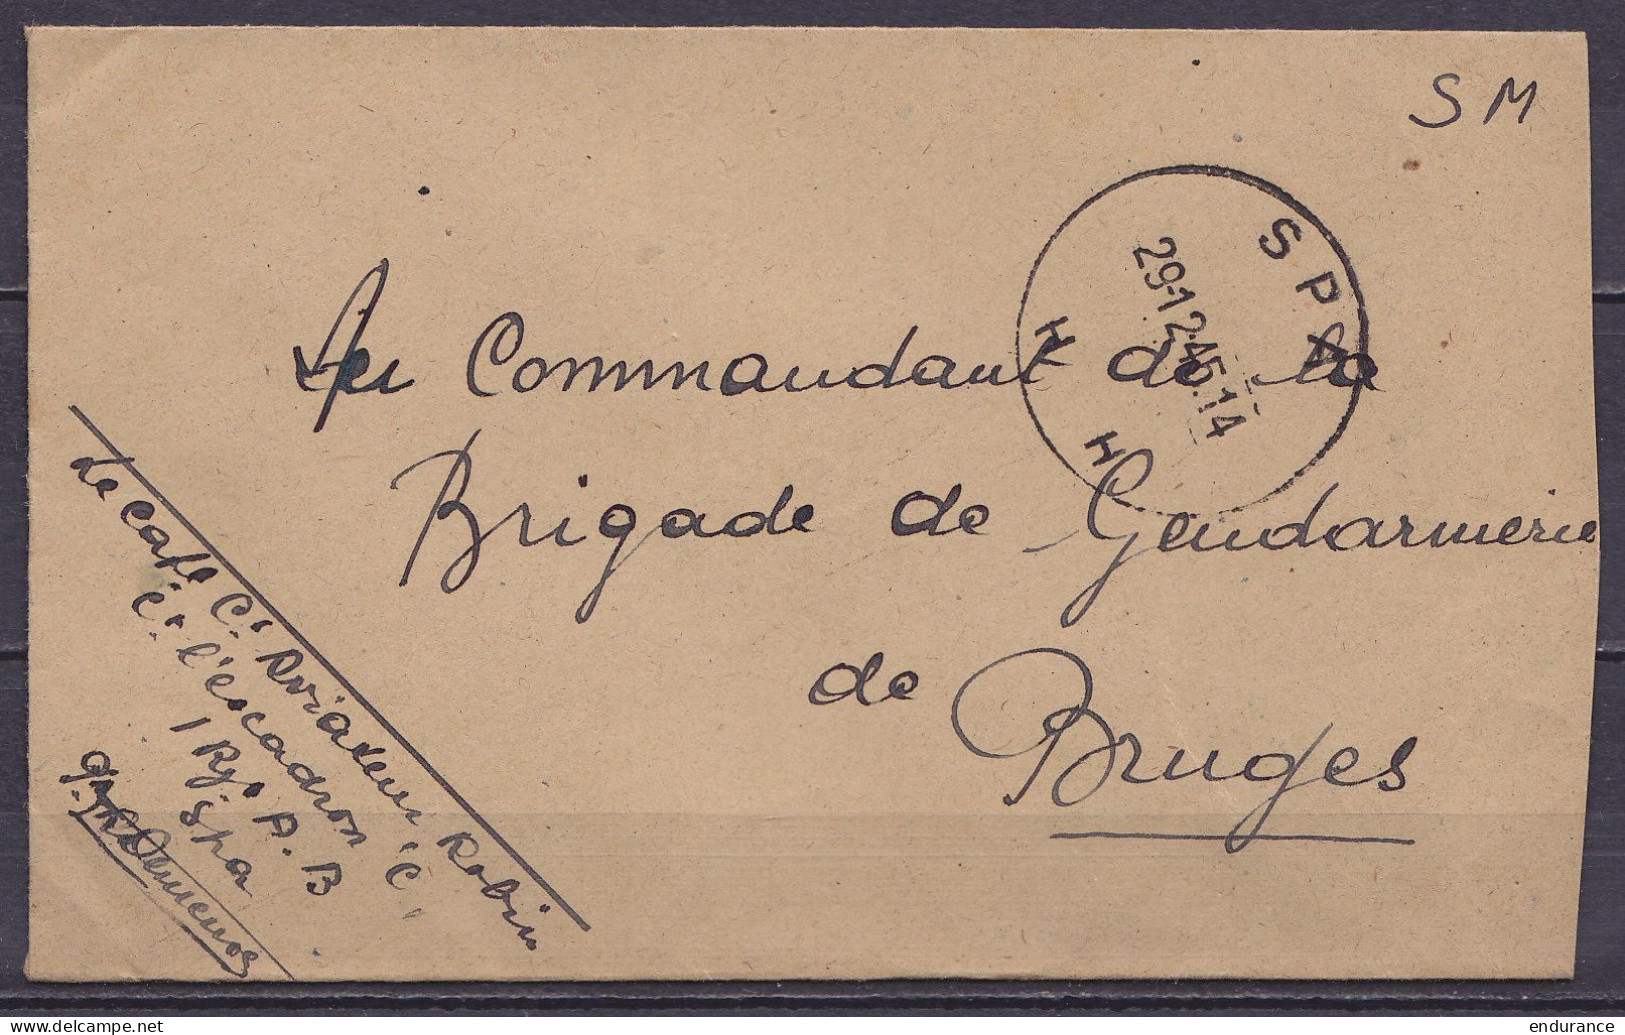 S M
SPA
29-12-45.14
H H
Au Commandant de la
Brigade de Gendarmerie
de
Bruges
Le Capt. Ct Aviateur Robin
Ct. l'escadron "C"
1 Rgt A.B
Spa
delcampe.net
endurance